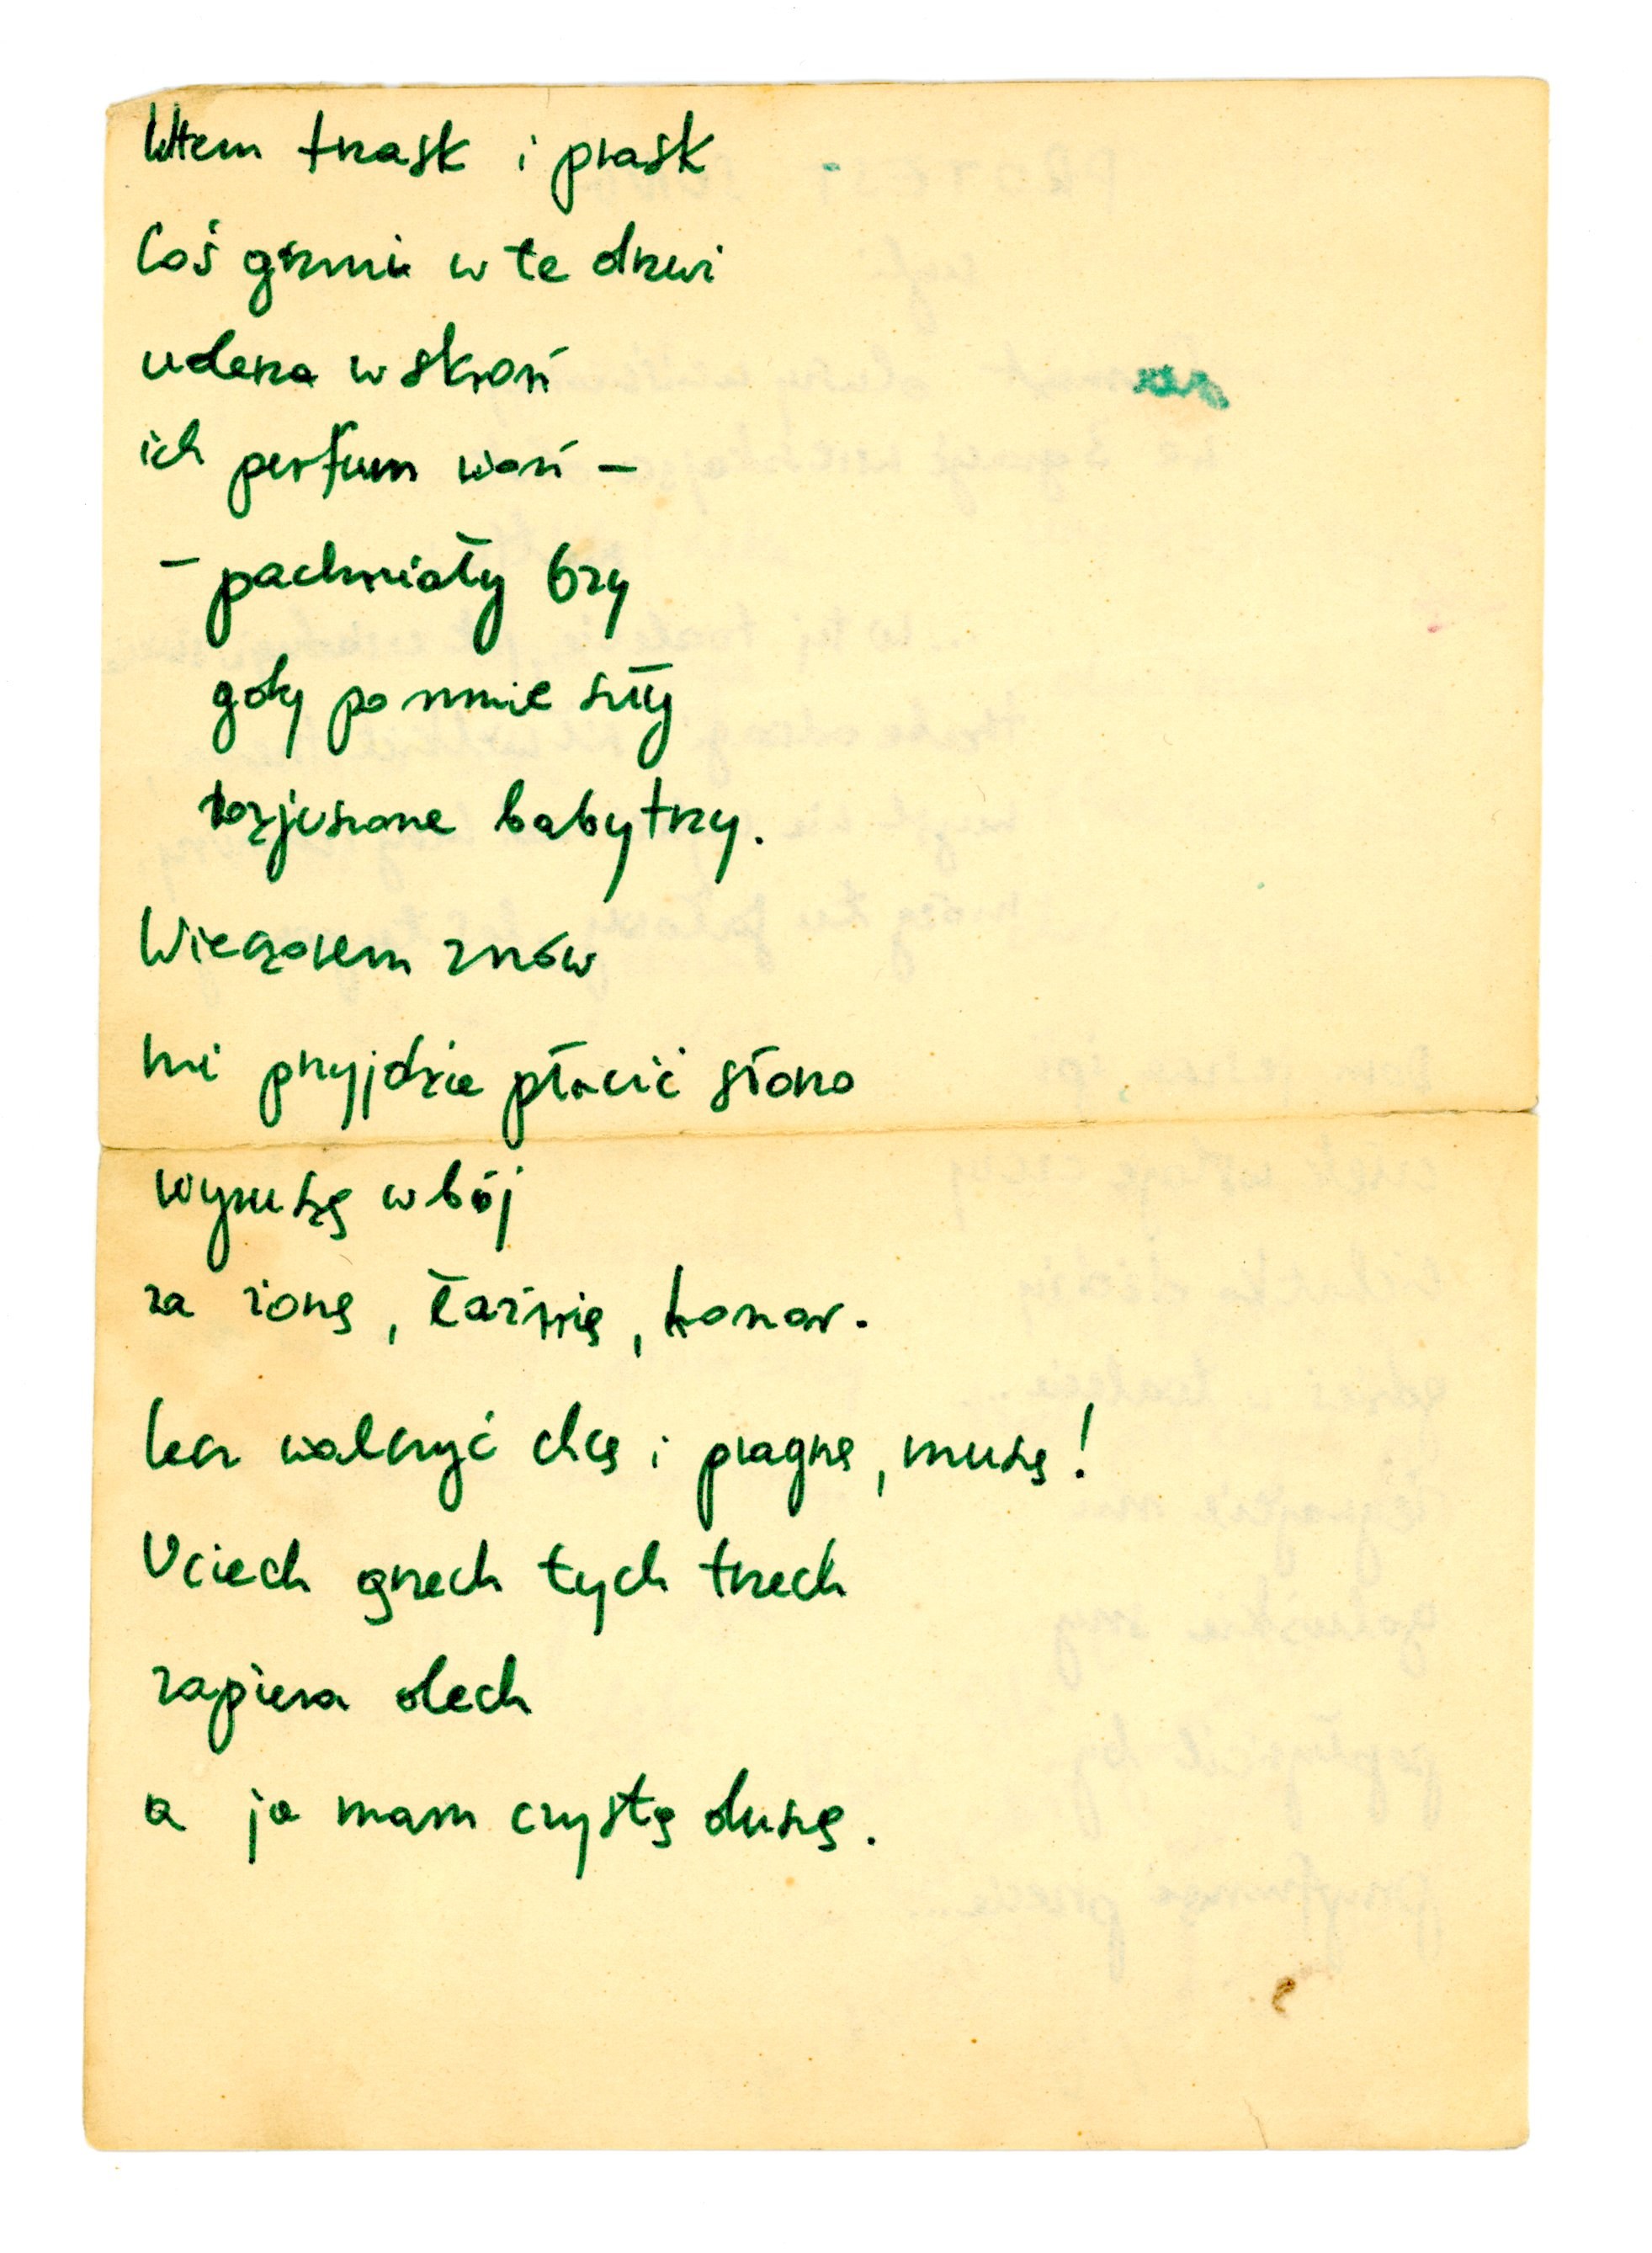 Wtem trzask i prask
Coś grzmi w te drzwi
uderza w skroń
ich perfum woń —
— pachniały bzy
gdy po mnie szły
rozjuszone baby trzy.
Wieczorem znów
mi przyjdzie płacić słono
wyruszę w bój
za żonę, łaźnię, honor.
Lecz walczyć chcę i pragnę, muszę!
Uciech grzech tych trzech
zapiera dech
a ja mam czystą duszę.